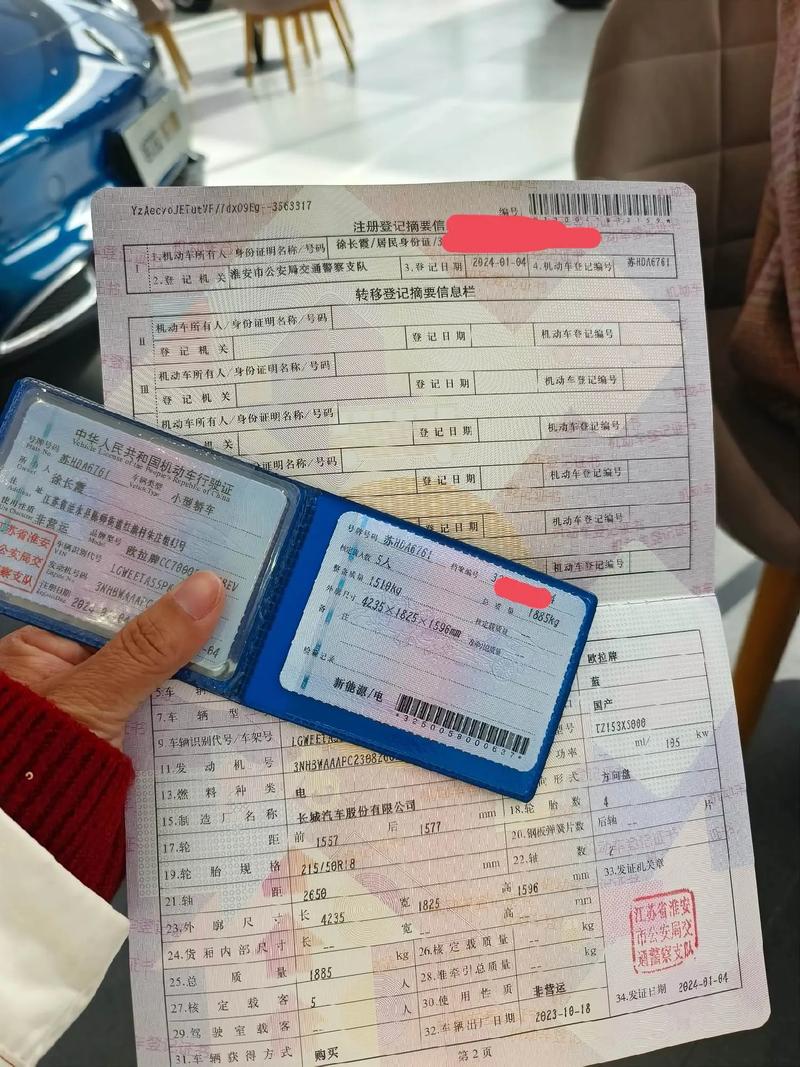 YzAecvoJETutVF//7dxO9Eg--3563317
编号
注册登记摘要信
I
1.机动车所有人/身份证明名称/号码 徐长霞/居民身份证/3
2.登记机关 淮安市公安局交通警察支队 3.登记日期 2024-01-04 4.机动车登记编号 苏HDA6761
转移登记摘要信息栏
II 机动车所有人/身份证明名称/号码
登记机关 登记日期 机动车登记编号
III 机动车所有人/身份证明名称/号码
登记机关 登记日期 机动车登记编号
机动车所有人/身份证明名称/号码
机关 登记日期 机动车登记编号
证明名称/号码
登记日期 机动车登记编号
登记日期 机动车登记编号
机动车登记编号
中华人民共和国机动车行驶证
Vehicle License of the People's Republic of China
号牌号码 苏HDA6761 车辆类型 小型轿车
Plate No. Vehicle Type
所有人 徐长霞
Owner
住址
使用性质 非营运 品牌型号 欧拉牌CC7000 REV
Use Character Model
车辆识别代号 LGWEETA55P
VIN
发动机号码 3NHBWAAAPC
Engine No.
注册日期
江苏省淮安
公安局交
警察支队
号牌号码 苏HDA6761 档案编号
核定载人数 5人 总质量 1885kg
整备质量 1510kg 核定载质量 --
外廓尺寸 4235×1825×1596mm 准牵引总质量 --
备注
检验记录
新能源/电
欧拉牌
5.车辆 蓝
7.车辆型 国产
9.车辆识别代号/车架号 LGWEETA5 号 TZ153XS000
11.发动机号 3NHBWAAAPC2308 功率 ml/ 105 kw
13.燃料种类 电 向形式 方向盘
15.制造厂名称 长城汽车股份有限公司 18.轮胎数 4
17.轮距 前 1557 后 1577 mm 20.钢板弹簧片数 后轴 -- 片
19.轮胎规格 215/50R18 22.轴数 2
21.轴距 2650 mm 33.发证机关章
23.外廓尺寸 长 4235 宽 1825 高 1596 mm
24.货厢内部尺寸 长 -- 宽 -- 高 -- mm
25.总质量 1885 kg 26.核定载质量 -- kg
27.核定载客 5 人 28.准牵引总质量 -- kg
29.驾驶室载客 -- 人 30.使用性质 非营运
31.车辆获得方式 购买 32.车辆出厂日期 2023-10-18 34.发证日期 2024-01-04
江苏省淮安
市公安局交
通警察支队
第2页